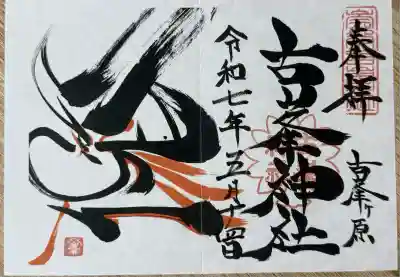 奉拝
古峯ヶ原
古峯神社
令和七年五月十四日